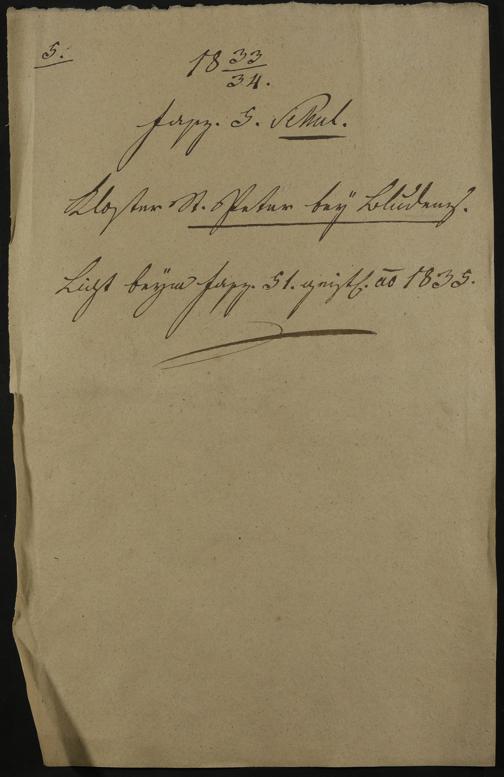 5.
18 33/34.
Fasz. 5. Schul.
Kloster St. Peter bey Bludenz.
Liegt beym Fasz. 51. geistl. ao 1835.